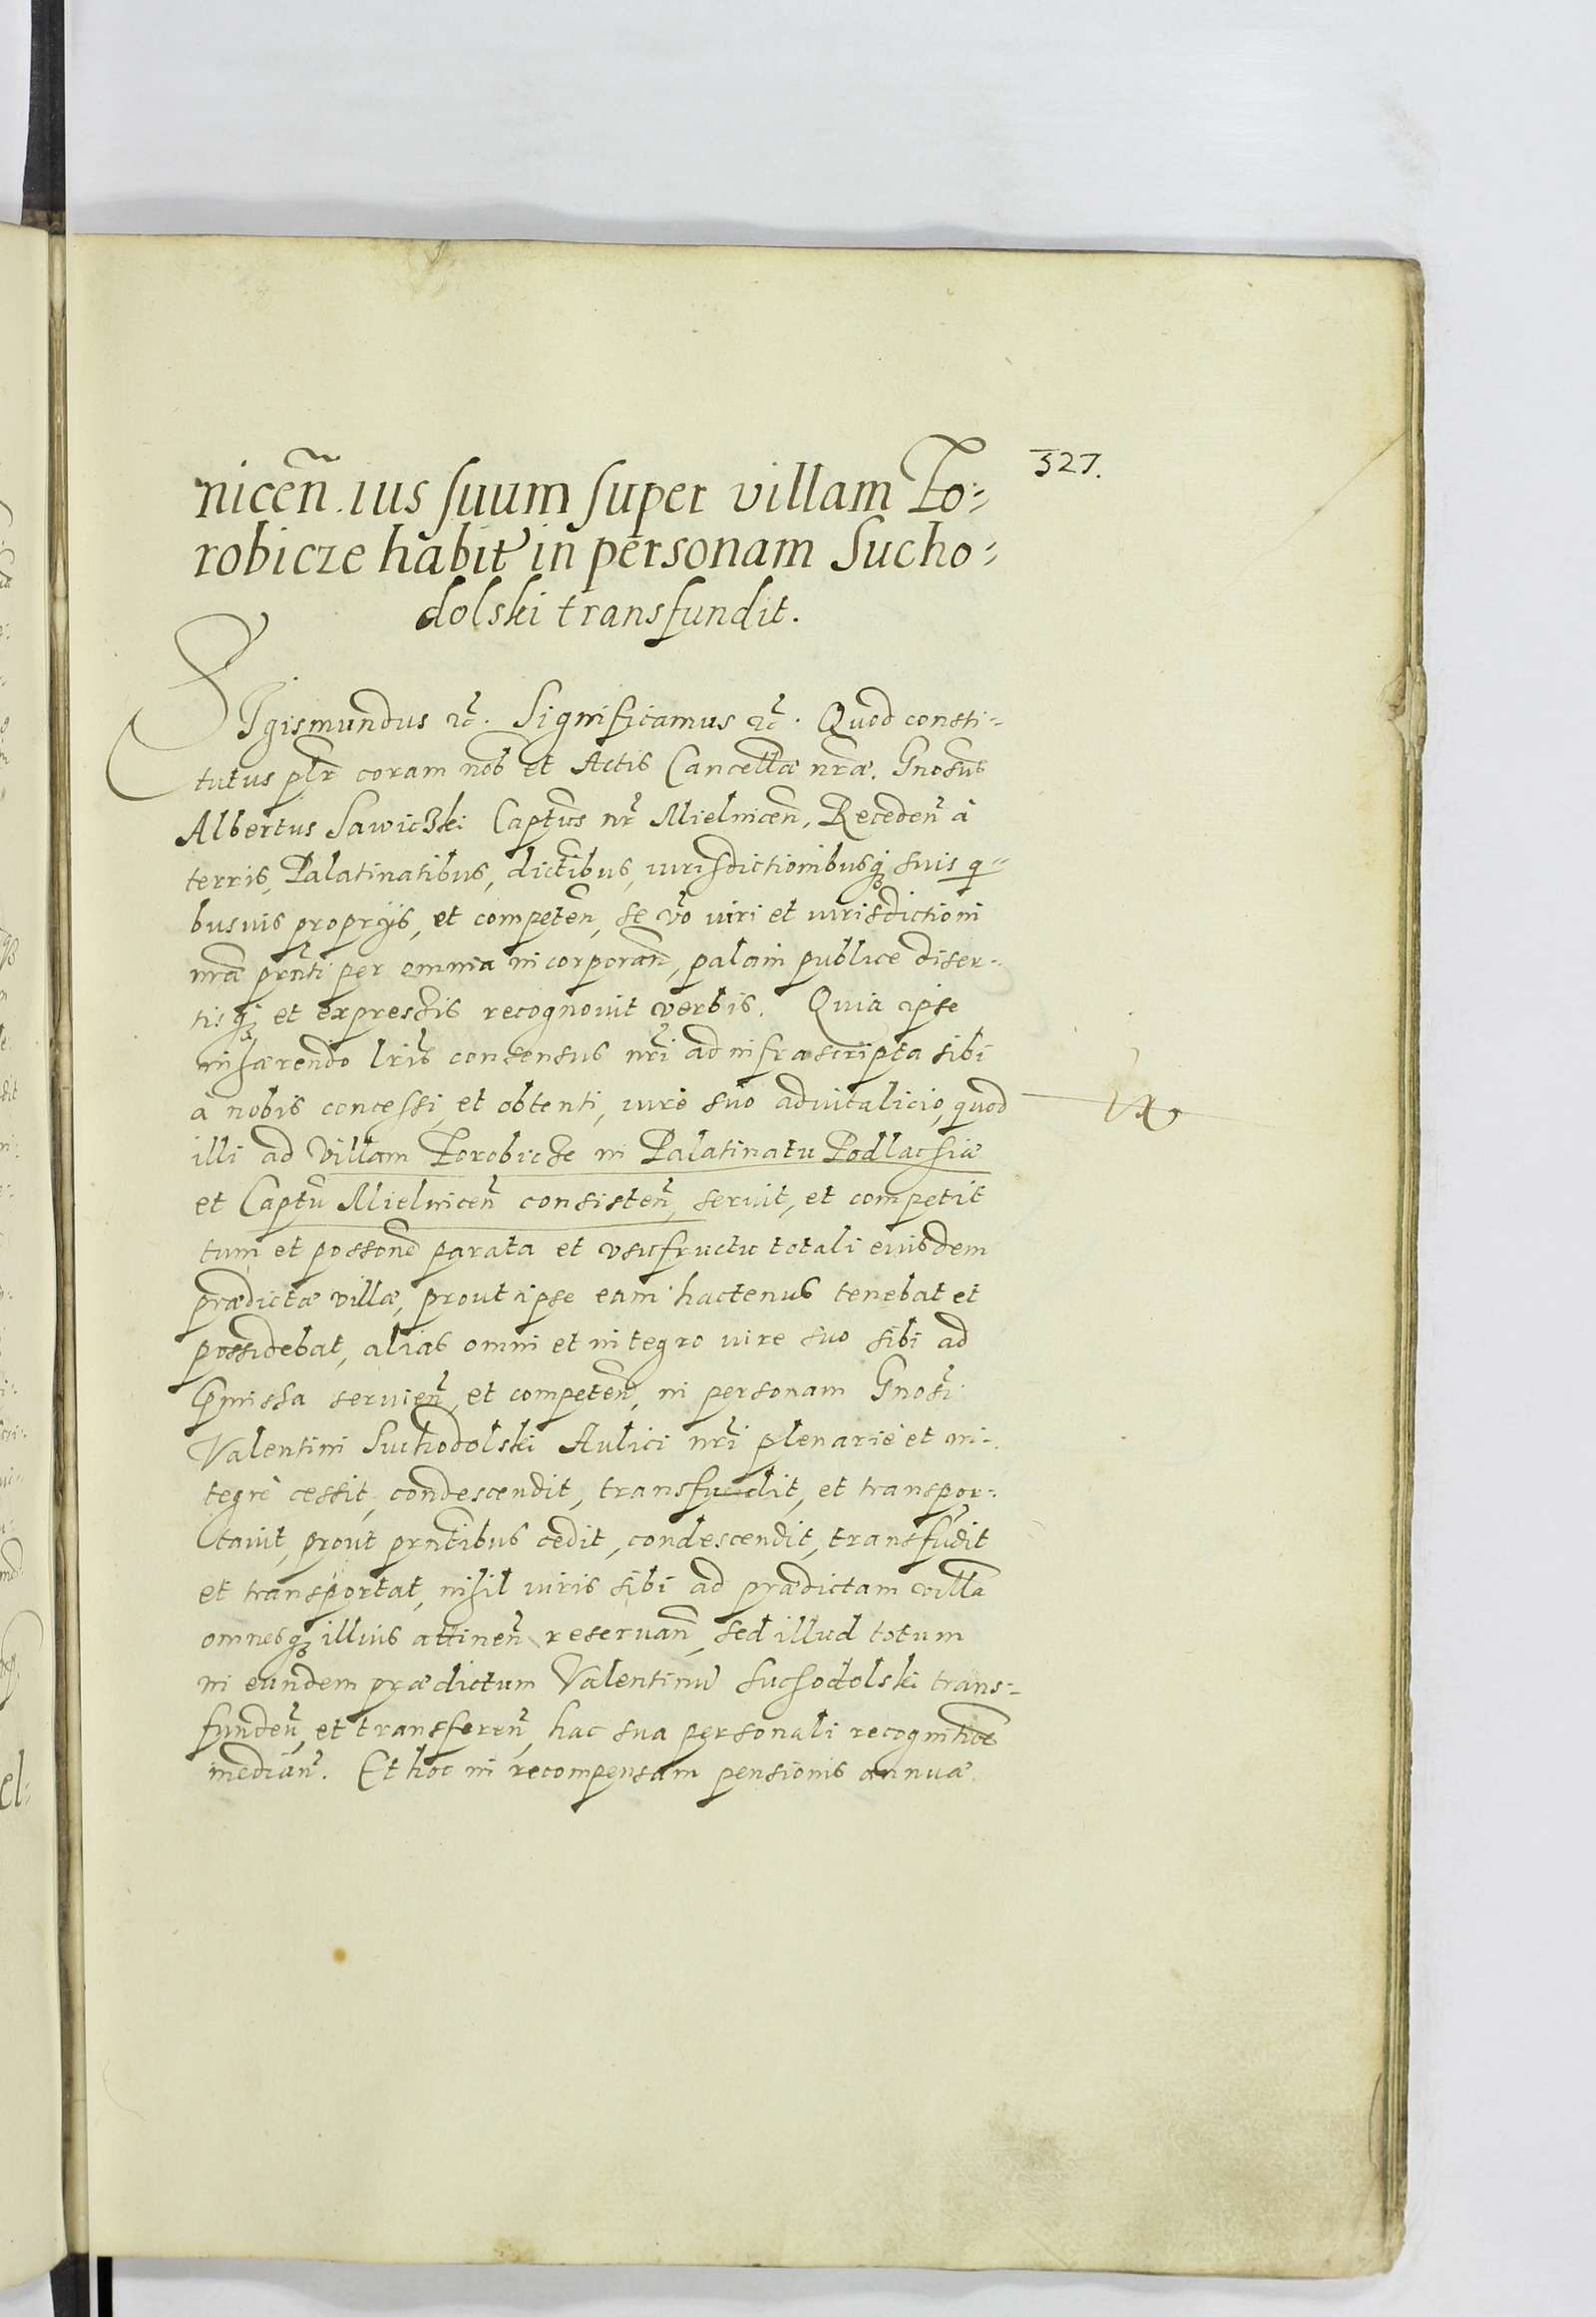 327.
niceñ. ius suum super villam To=
robicze habit in personam Sucho=
dolski transfundit.
SIgismundus etc. Significamus etc. Quod consti=
tutus plr coram nob et Actis Cancellæ nræ. Gnosus
Albertus Sawiczki Captus nr Mielnicen, Receden à
terris, Palatinatibus, dictibus, iurisdictionibusq suis q=
busuis proprijs, et competen, se vo iuri et iurisdictioni
nræ prnti per omnia incorporan, palam publice diser=
tisq et expressis recognouit verbis. Quia ipse
inhærendo lris consensus nri ad infrascripta sibi
à nobis concessi, et obtenti, iure suo aduitalicio, quod
illi ad Villam Torobicze in Palatinatu Podlachiæ
et Captu Mielnicen consisten, seruit, et competit
tum et possone parata et vsufructu totali eiusdem
prædictæ villæ, prout ipse eam hactenus tenebat et
possidebat, alias omni et integro iure suo sibi ad
pmissa seruien, et competen, in personam Gnosi
Valentini Suchodolski Aulici nri plenariè et in=
tegrè cessit, condescendit, transfudit, et transpor=
tauit, prout prntibus cedit, condescendit, transfudit
et transportat, nihil iuris sibi ad prædictam villa
omnesq illius attinen reseruan, sed illud totum
in eundem prædictum Valentinu Suchodolski trans=
funden, et transferen, hac sua personali recognitioe
median. Et hoc in recompensam pensionis annuæ